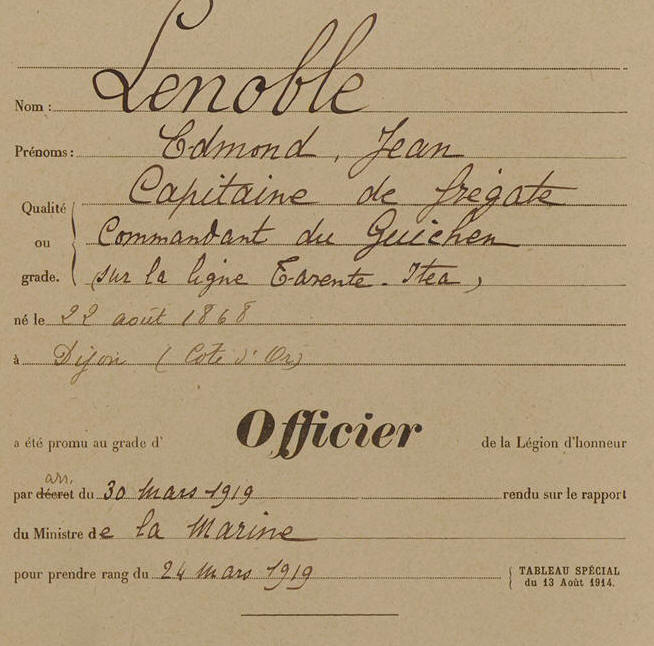 Nom : Lenoble
Prénoms : Edmond, Jean
Qualité ou grade. Capitaine de frégate
Commandant du Guichen
sur la ligne Tarente - Itea,
né le 22 août 1868
à Dijon (Cote d'Or)
a été promu au grade d' Officier de la Légion d'honneur
arr.
par décret du 30 Mars 1919 rendu sur le rapport
du Ministre de la Marine
pour prendre rang du 24 Mars 1919
TABLEAU SPÉCIAL
du 13 Août 1914.